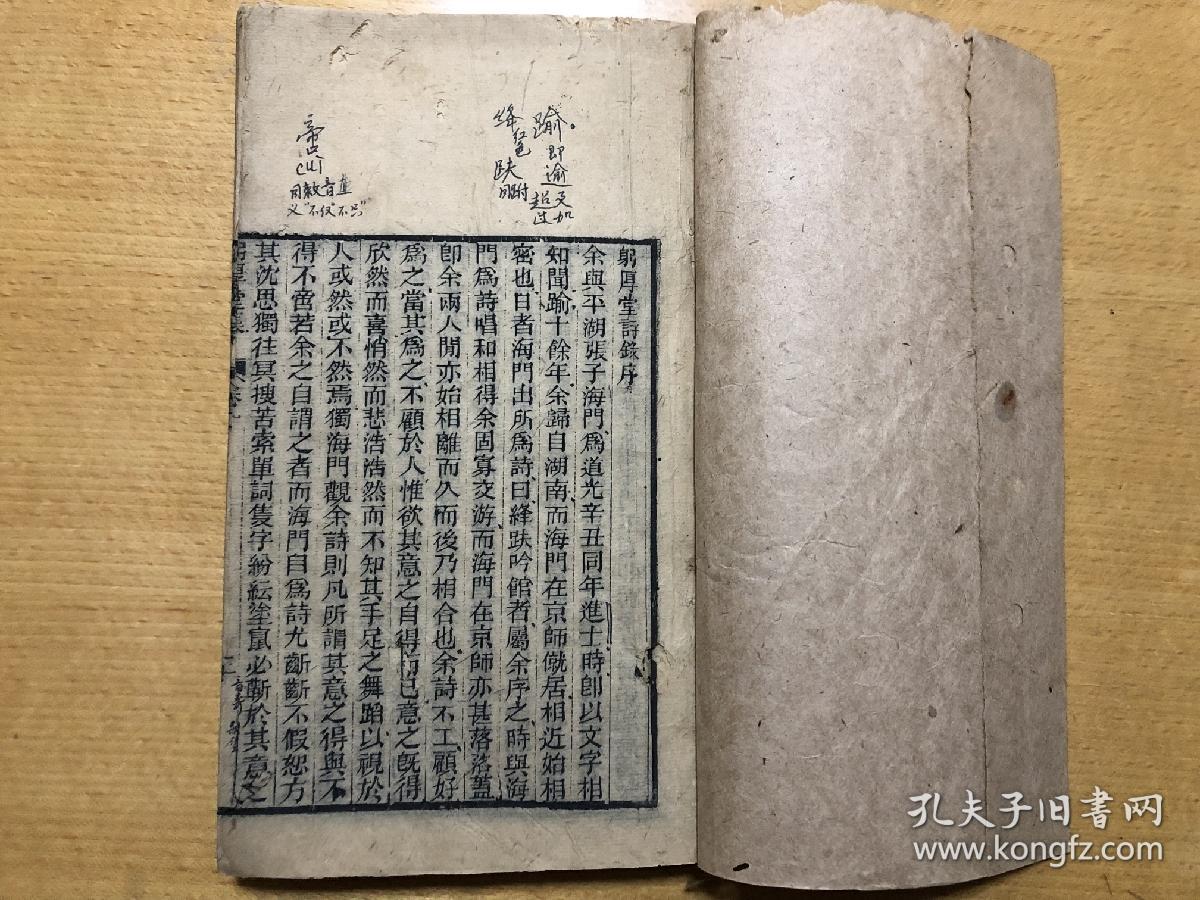 躬厚堂詩錄序
余與平湖張子海門爲道光辛丑同年進士時卽以文字相
知聞踰十餘年余歸自湖南而海門在京師僦居相近始相
密也日者海門出所爲詩曰絳趺吟館者屬余序之時與海
門爲詩唱和相得余固寡交游而海門在京師亦甚落落蓋
卽余兩人閒亦始相離而久而後乃相合也余詩不工顧好
爲之當其爲之不顧於人惟欲其意之自得而已意之旣得
欣然而喜悄然而悲浩浩然而不知其手足之舞蹈以視於
人或然或不然焉獨海門觀余詩則凡所謂其意之得與不
得不啻若余之自謂之者而海門自爲詩尤齗齗不假恕方
其沈思獨往冥搜苦索單詞隻字紛紜塗竄必蘄於其意之
踰即逾
又加
超过
絳
趺
同跗
啻
音
义"不仅"不只"
孔夫子旧书网
www.kongfz.com